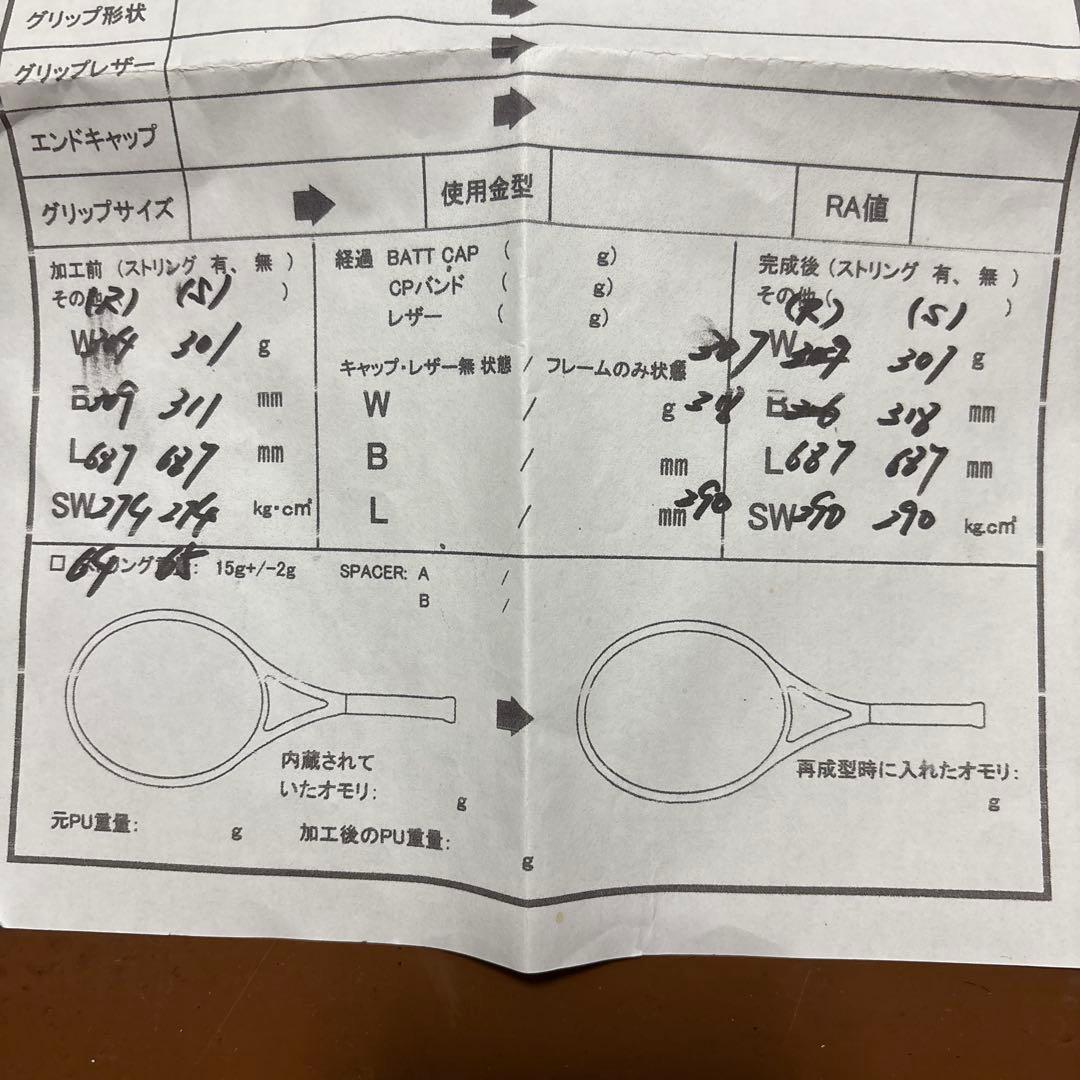 グリップ形状
グリップレザー
エンドキャップ
グリップサイズ 使用金型 RA値
加工前 (ストリング 有、無 )
その他( )
(R) (S)
W 304 301 g
B 309 311 mm
L 687 687 mm
SW 274 274 kg・c㎡
64 65
経過 BATT CAP ( g)
CPバンド ( g)
レザー ( g)
キャップ・レザー無 状態 / フレームのみ状態
W / g
B / mm
L / mm
完成後 (ストリング 有、無 )
その他( )
(R) (S)
307 W 307 g
318 B 318 mm
L 687 687 mm
290 SW 290 290 kg.c㎡
□ ストリング重量: 15g+/-2g SPACER: A /
B /
内蔵されて
いたオモリ: g
再成型時に入れたオモリ:
g
元PU重量: g 加工後のPU重量:
g